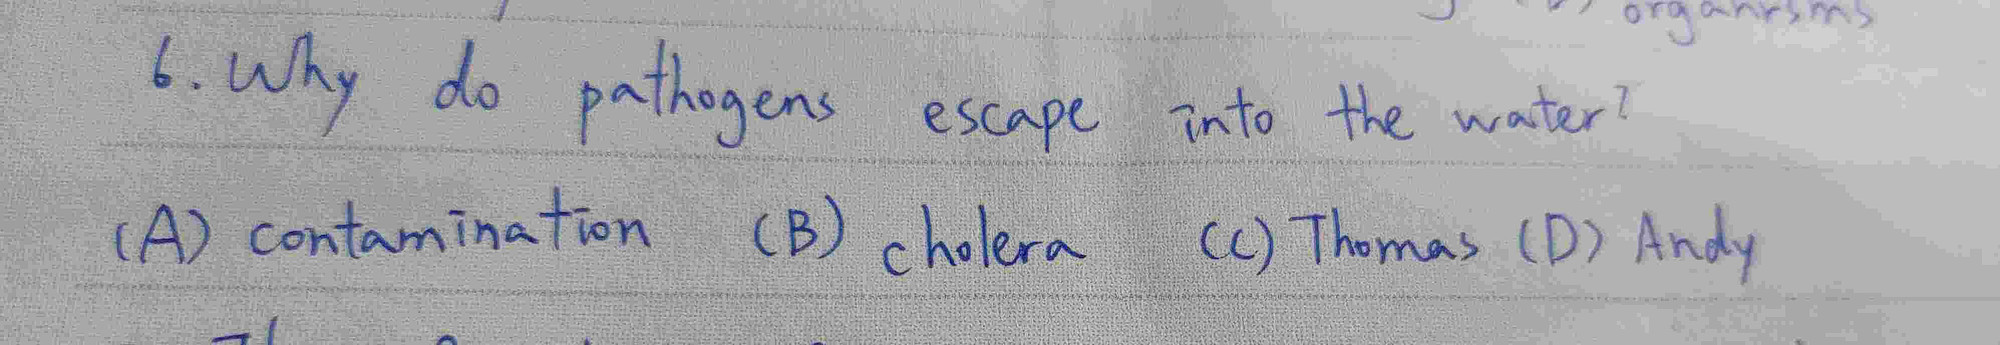 organisms
6. Why do pathogens escape into the water?
(A) contamination (B) cholera (C) Thomas (D) Andy